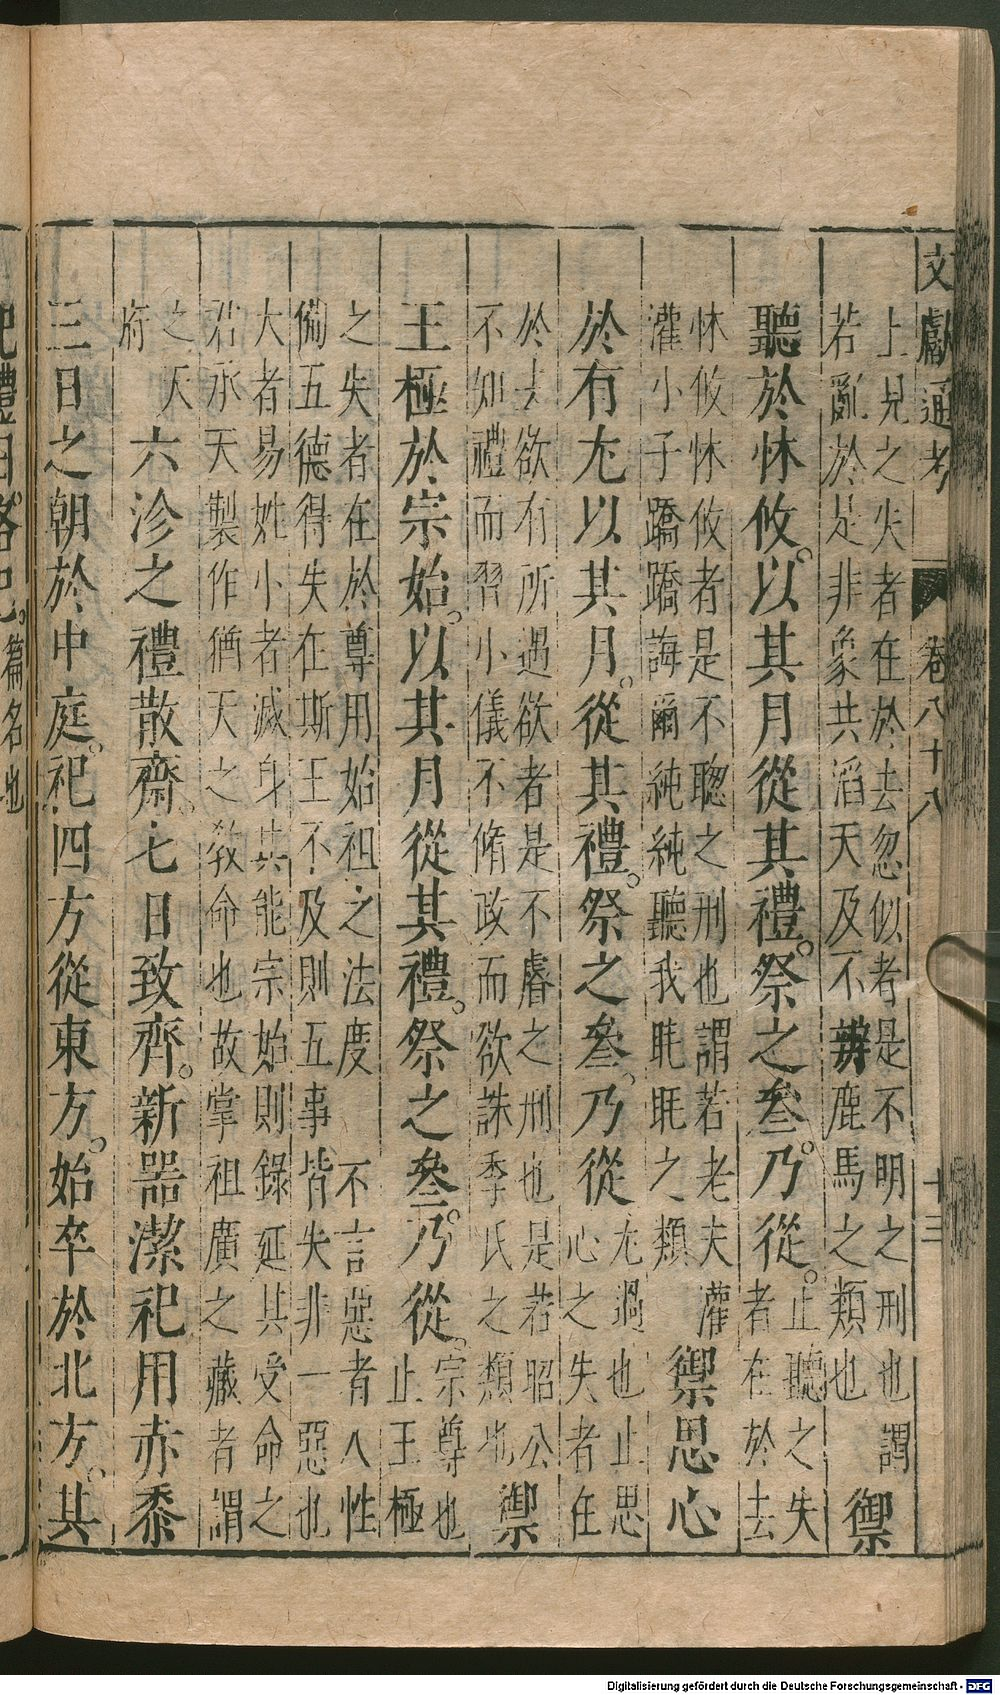 文獻通考 卷八十八 十三
上見之失者在於去忽似者是不明之刑也謂
若亂於是非象共滔天及不辨鹿馬之類也
禦
聽於怵攸。以其月從其禮。祭之參。乃從。
止聽之失
者在於去
怵攸怵攸者是不聰之刑也謂若老夫灌
灌小子蹻蹻誨爾純純聽我眊眊之類
禦思心
於有尤以其月。從其禮。祭之參。乃從
尤過也止思
心之失者在
於去欲有所過欲者是不睿之刑也是若昭公
不知禮而習小儀不脩政而欲誅季氏之類也
禦
王極於宗始。以其月從其禮。祭之參。乃從。
宗尊也
止王極
之失者在於尊用始祖之法度 不言惡者人性
備五德得失在斯王不及則五事皆失非一惡也
大者易姓小者滅身其能宗始則錄延其受命之
若承天製作猶天之敎命也故掌祖廣之藏者謂
之天
府
六沴之禮散齋。七日致齊。新器潔祀用赤黍
三日之朝於中庭。祀四方從東方。始卒於北方。其
祀禮曰格祀。篇名也
Digitalisierung gefördert durch die Deutsche Forschungsgemeinschaft - DFG